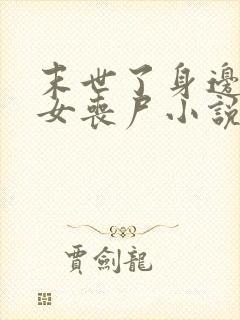 末世了身邊
女喪尸小說
賈劍龍